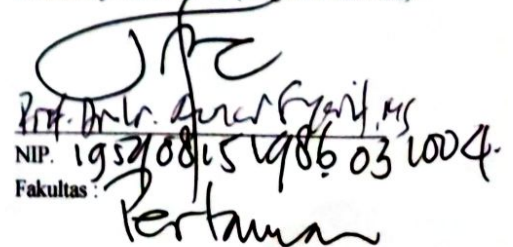 Prof. Dr. Ir. MS
NIP. 19590815 198603 1004.
Fakultas : Pertanian